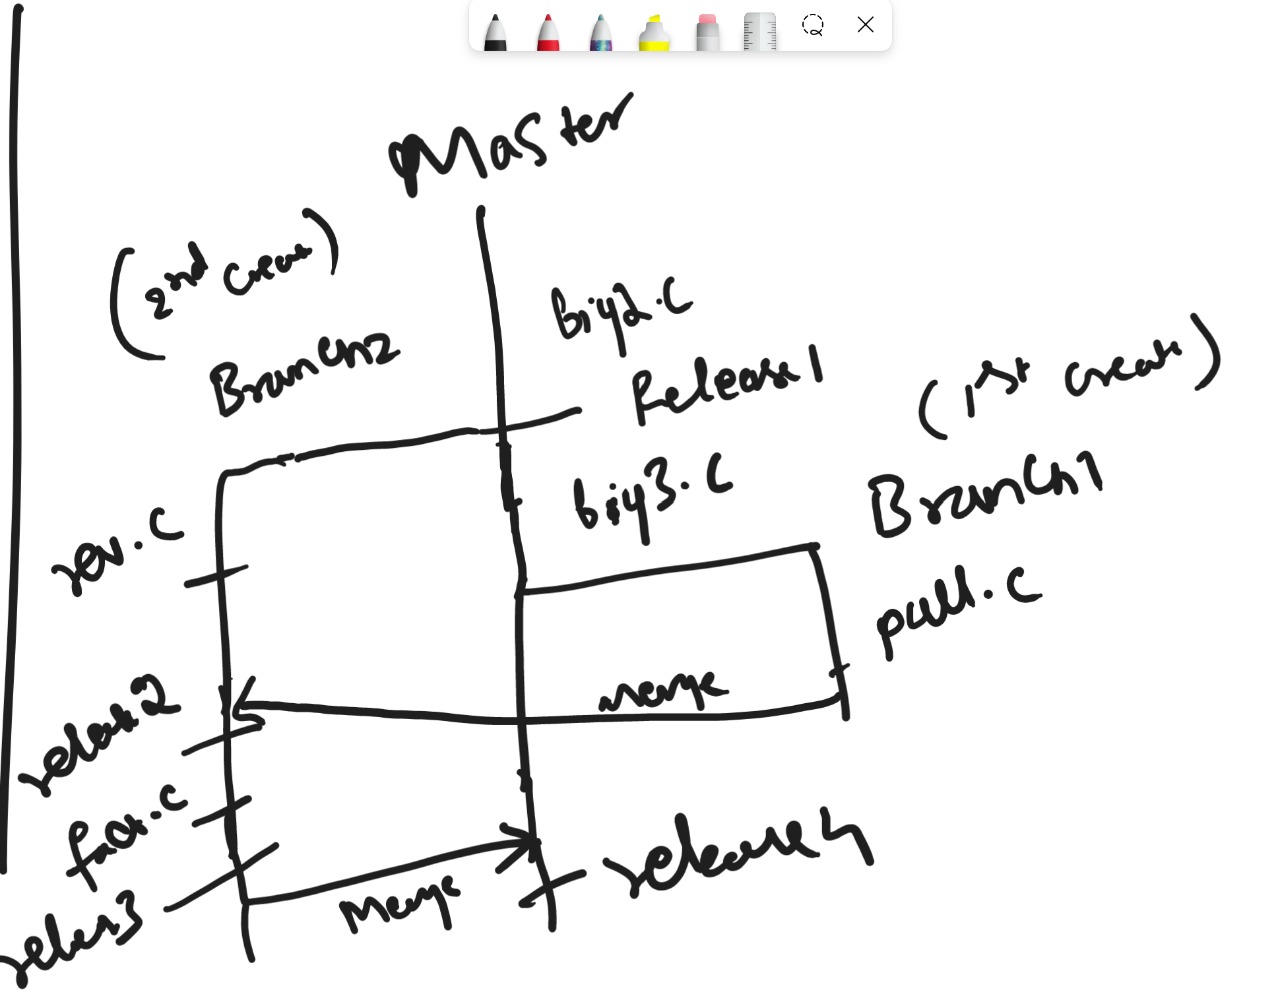 Master
(2nd creat)
Branch2
biy2.c
Release1
(1st create)
Branch1
biy3.c
rev.c
pall.c
merge
relea2
fact.c
release4
Merge
reles3